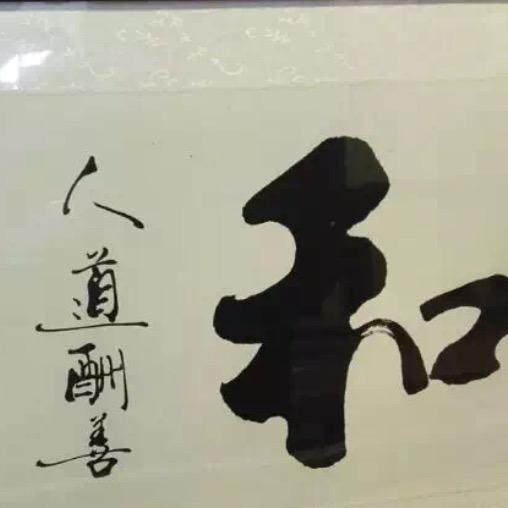 和
人道酬善